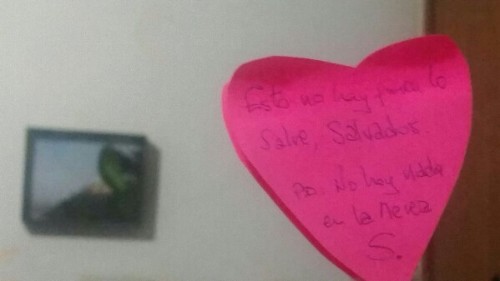 Esto no hay quien lo
salve, Salvador.
PD. No hay nada
en la nevera
S.